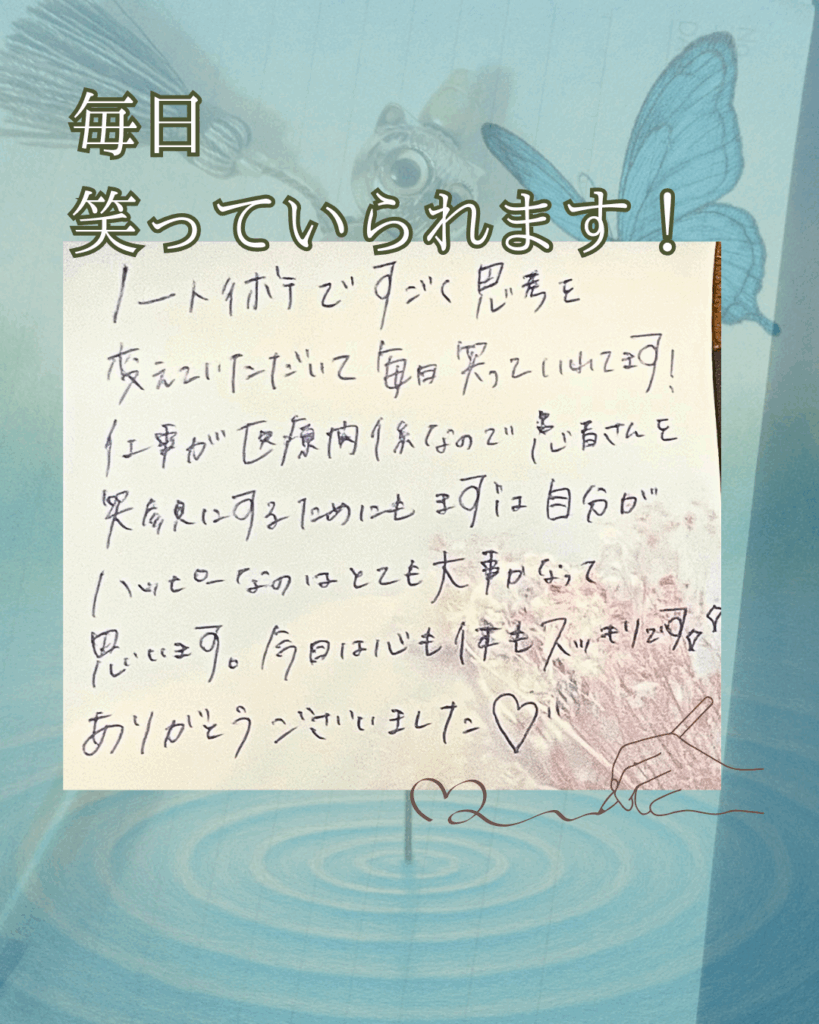 毎日
笑っていられます！
ノートイボテですごく思考を
変えていただいて毎日笑っていれてます!
仕事が医療関係なので患者さんを
笑顔にするためにもまずは自分が
ハッピーなのはとても大事かなって
思います。今日は心も体もスッキリです
ありがとうございました♡